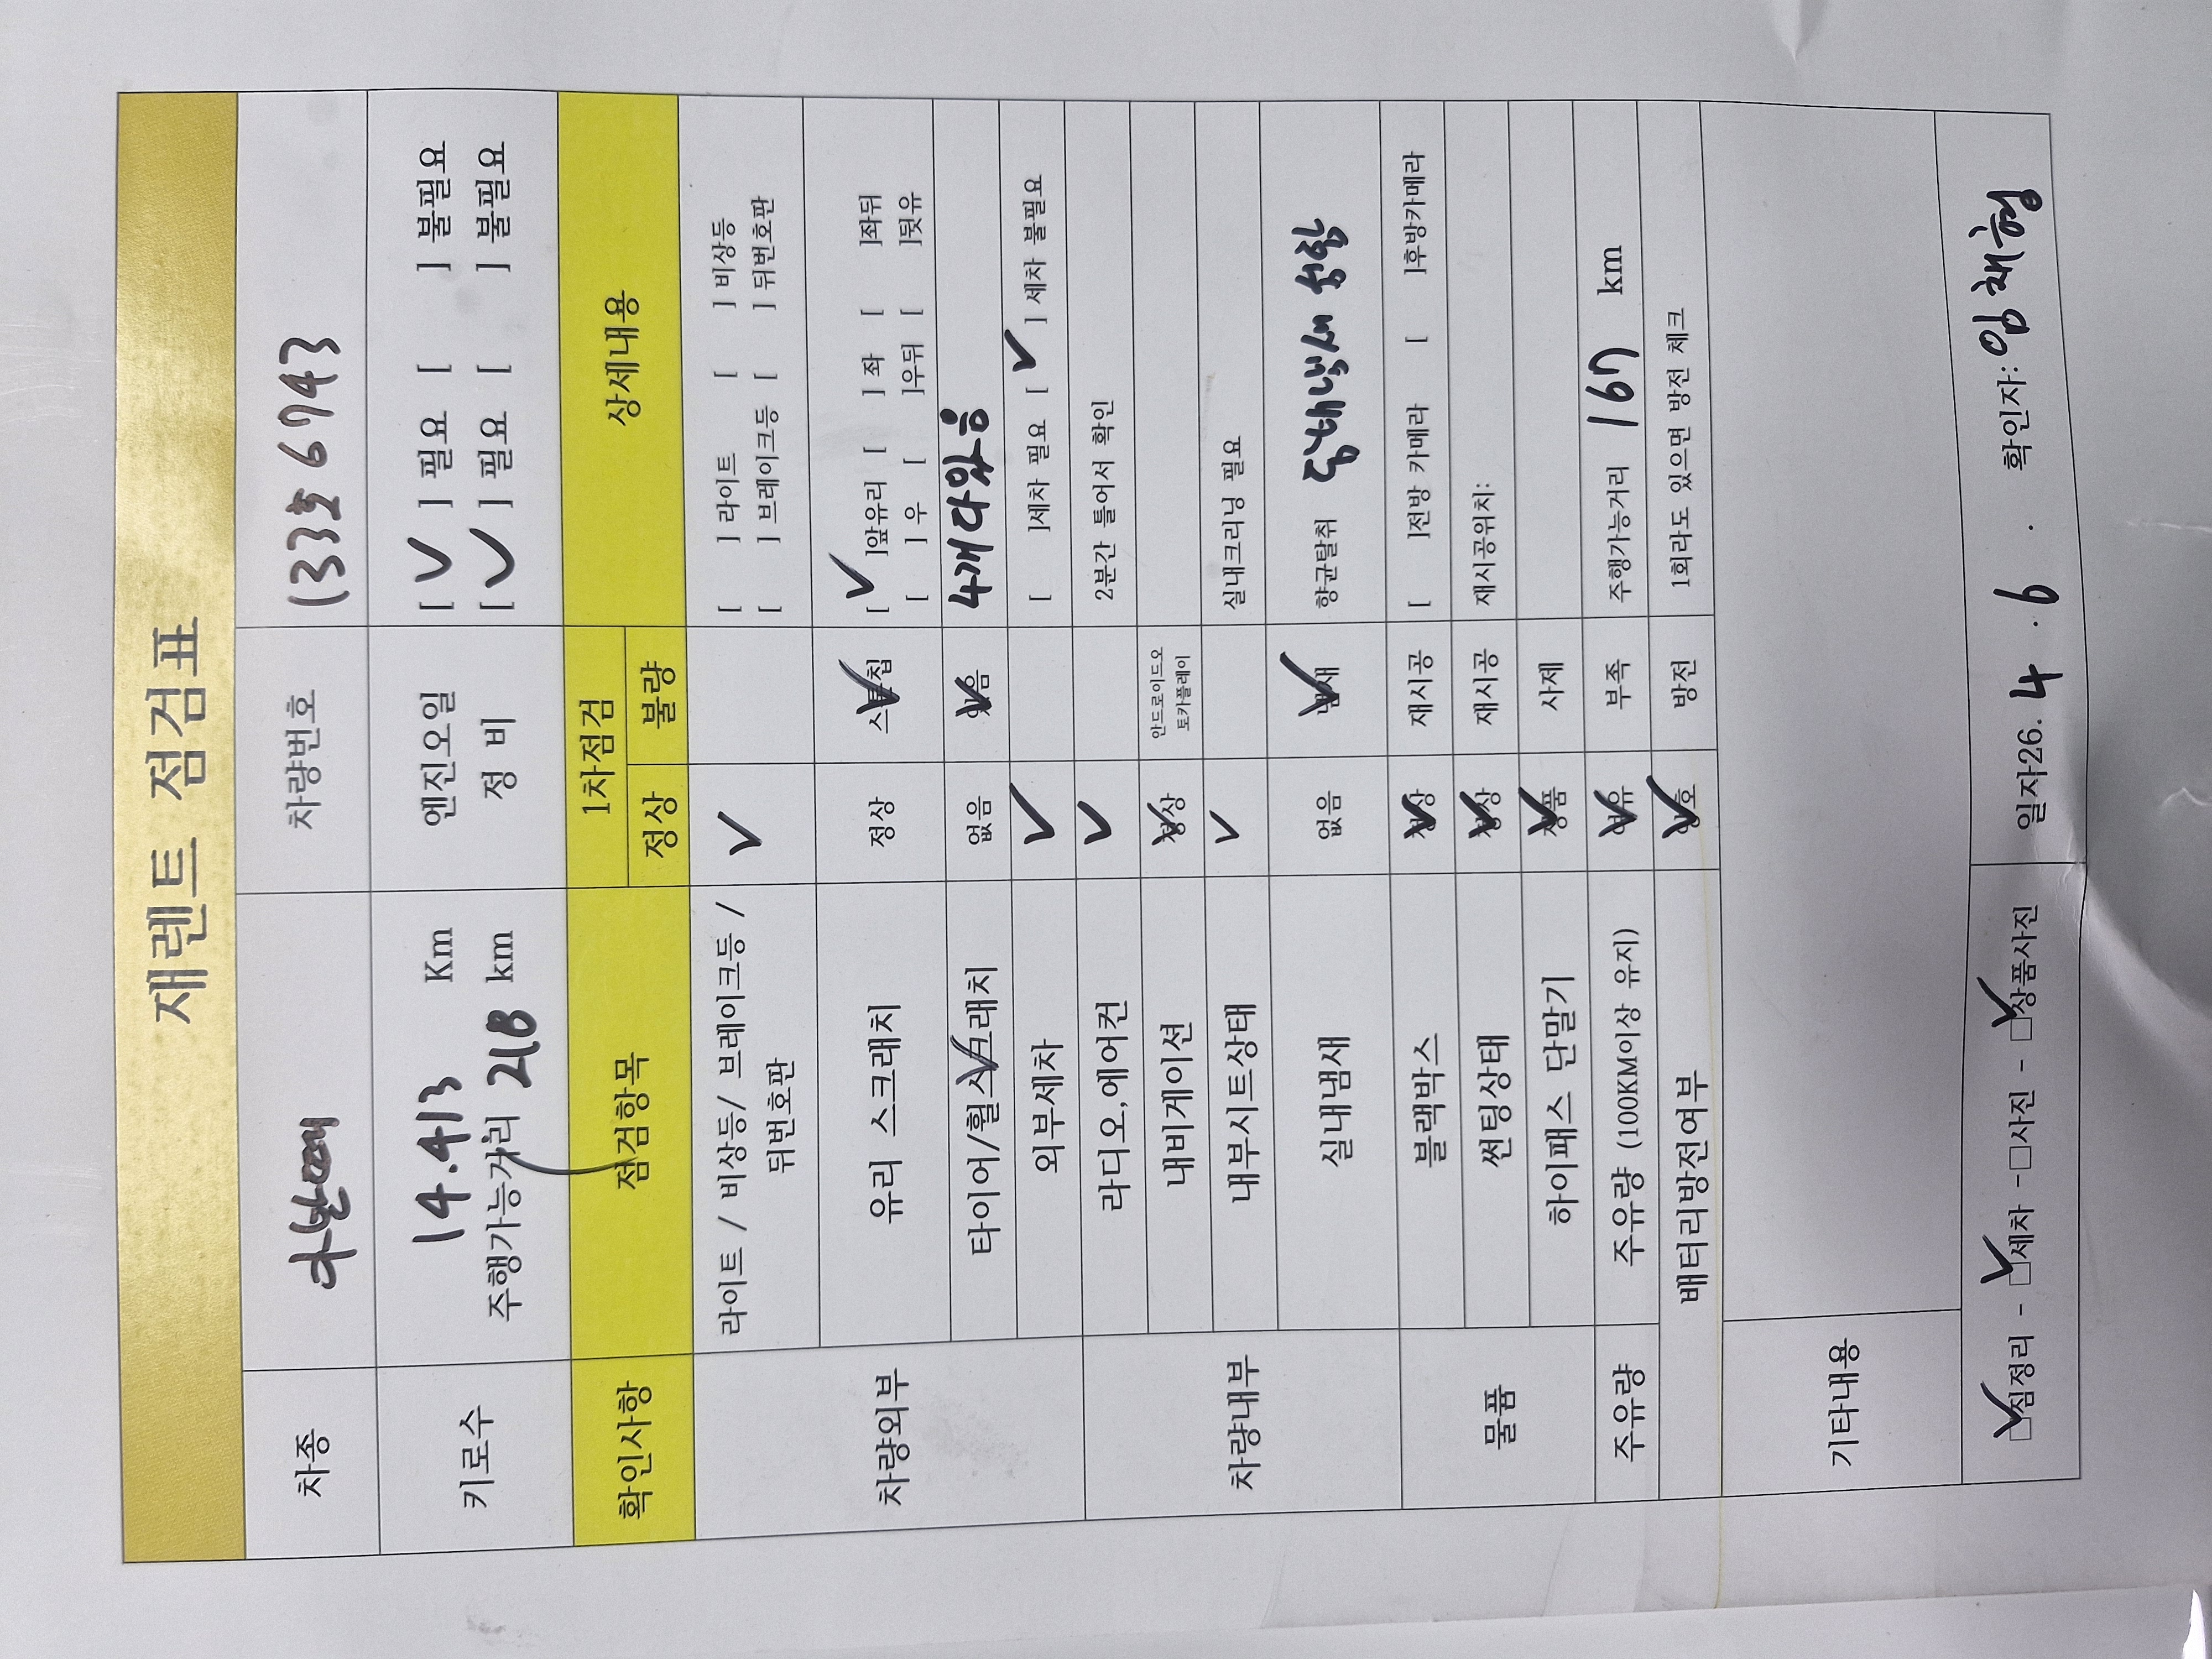 재렌트 점검표
차종 차량번호 133호 6743
키로수 14.413 Km 엔진오일 [ ✓ ] 필요 [ ] 불필요
주행가능거리 km 정 비 [ ✓ ] 필요 [ ] 불필요
확인사항 점검항목 1차점검 상세내용
정상 불량
차량외부 라이트 / 비상등/ 브레이크등 / ✓ [ ] 라이트 [ ] 비상등
뒤번호판 [ ] 브레이크등 [ ] 뒤번호판
유리 스크래치 정상 스톤칩 ✓ [ ✓ ]앞유리 [ ] 좌 [ ]좌뒤
[ ] 우 [ ]우뒤 [ ]뒷유
타이어/휠스크래치 없음 있음 ✓ 4개다있음
외부세차 ✓ [ ]세차 필요 [ ✓ ] 세차 불필요
차량내부 라디오,에어컨 ✓ 2분간 틀어서 확인
내비게이션 정상 ✓ 안드로이드오
토카플레이
내부시트상태 ✓ 실내크리닝 필요
실내냄새 없음 냄새 ✓ 향균탈취 담배냄새 심함
물품 블랙박스 정상 ✓ 재시공 [ ]전방 카메라 [ ]후방카메라
썬팅상태 정상 ✓ 재시공 재시공위치:
하이패스 단말기 정품 ✓ 사제
주유량 주유량 (100KM이상 유지) 여유 ✓ 부족 주행가능거리 167 km
배터리방전여부 양호 ✓ 방전 1회라도 있으면 방전 체크
기타내용
☑짐정리 - ☑세차 -□사진 - ☑상품사진 일자26. 4 . 6 . 확인자: 임채형